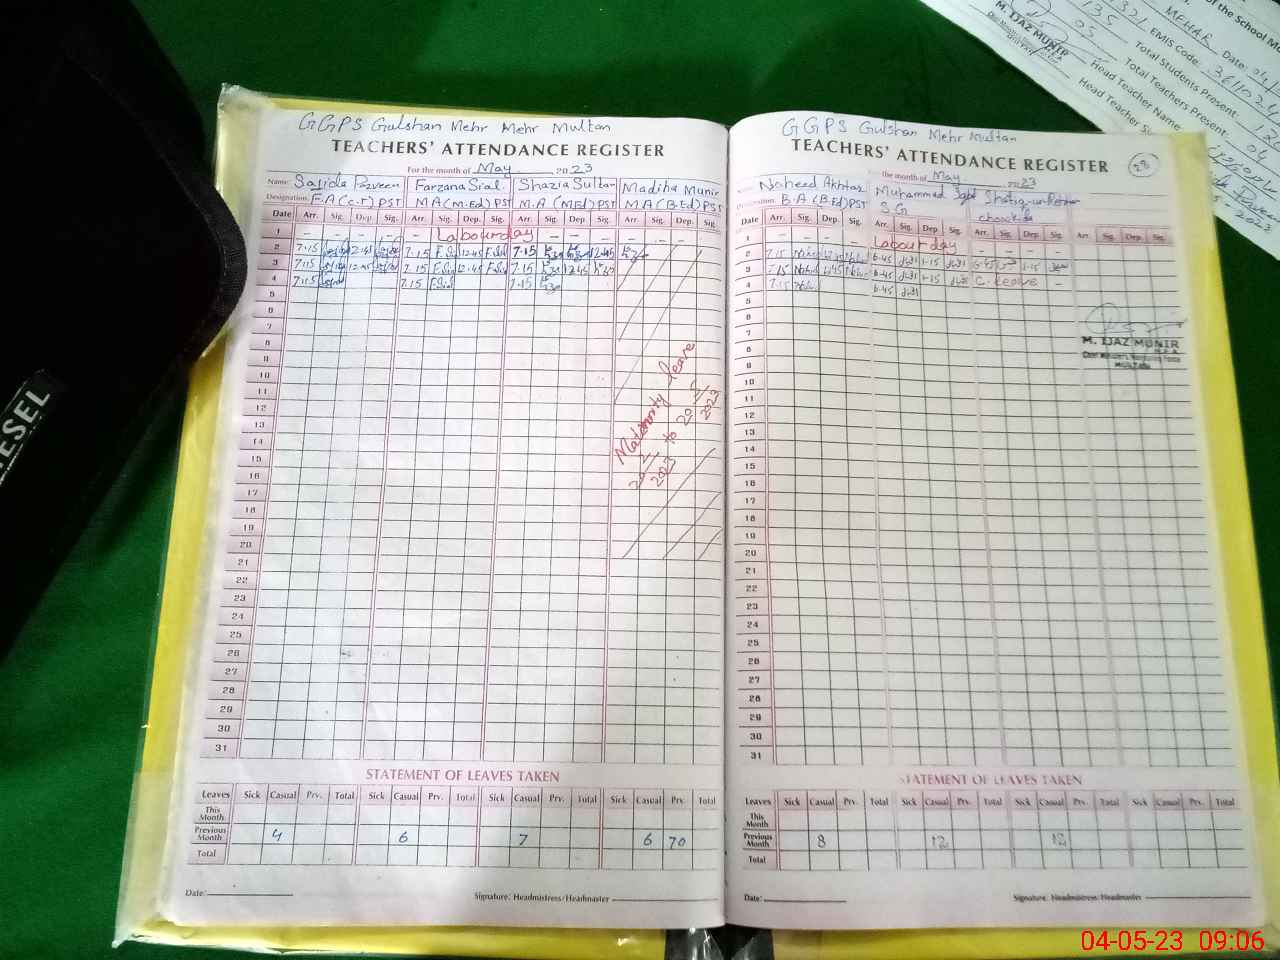 GGPS Gulshan Mehr Mehr Multan
TEACHERS' ATTENDANCE REGISTER
For the month of May 2023
Name: Sajida Parveen Farzana Sial Shazia Sultan Madiha Munir
Designation: F.A (C.T) PST M.A (M.Ed) PST M.A (M.Ed) PST M.A (B.Ed) PST
Date Arr. Sig. Dep. Sig. Arr. Sig. Dep. Sig. Arr. Sig. Dep. Sig. Arr. Sig. Dep. Sig.
1 – – – – Labour day – – – – – –
2 7.15 12.45 7.15 F.Sial 12.45 F.Sial 7.15 12.45
3 7.15 12.45 7.15 F.Sial 12.45 F.Sial 7.15 12.45
4 7.15 7.15 F.Sial 7.15
5
6
7
8
9
10
11
12
13
14
15
16
17
18
19
20
21
22
23
24
25
26
27
28
29
30
31
Maternity leave
20/2/2023 to 20/5/2023
STATEMENT OF LEAVES TAKEN
Leaves Sick Casual Prv. Total Sick Casual Prv. Total Sick Casual Prv. Total Sick Casual Prv. Total
This Month
Previous Month 4 6 7 6 70
Total
Date: Signature: Headmistress/Headmaster
GGPS Gulshan Mehr Multan
TEACHERS' ATTENDANCE REGISTER
28
the month of May 2023
Naheed Akhtar Muhammad Iqbal Shafiq-ur-Rehman
B.A (B.Ed) PST S.G chookidar
Date Arr. Sig. Dep. Sig. Arr. Sig. Dep. Sig. Arr. Sig. Dep. Sig. Arr. Sig. Dep. Sig.
1 – – – – Labour day – – – –
2 7.15 12.45 6.45 1.15 6.45 1.15
3 7.15 12.45 6.45 1.15 C. Leave –
4 7.15 6.45
5
6
7
8
9
10
11
12
13
14
15
16
17
18
19
20
21
22
23
24
25
26
27
28
29
30
31
M. IJAZ MUNIR
MULTAN
STATEMENT OF LEAVES TAKEN
Leaves Sick Casual Prv. Total Sick Casual Prv. Total Sick Casual Prv. Total Sick Casual Prv. Total
This Month
Previous Month 8 12 12
Total
Date: Signature: Headmistress/Headmaster
of the School
MEHAR Date: 04/
EMIS Code:
135 Total Students Present:
03 Total Teachers Present:
Head Teacher Name:
Head Teacher
04
M. IJAZ MUNIR
2023
ESEL
04-05-23 09:06